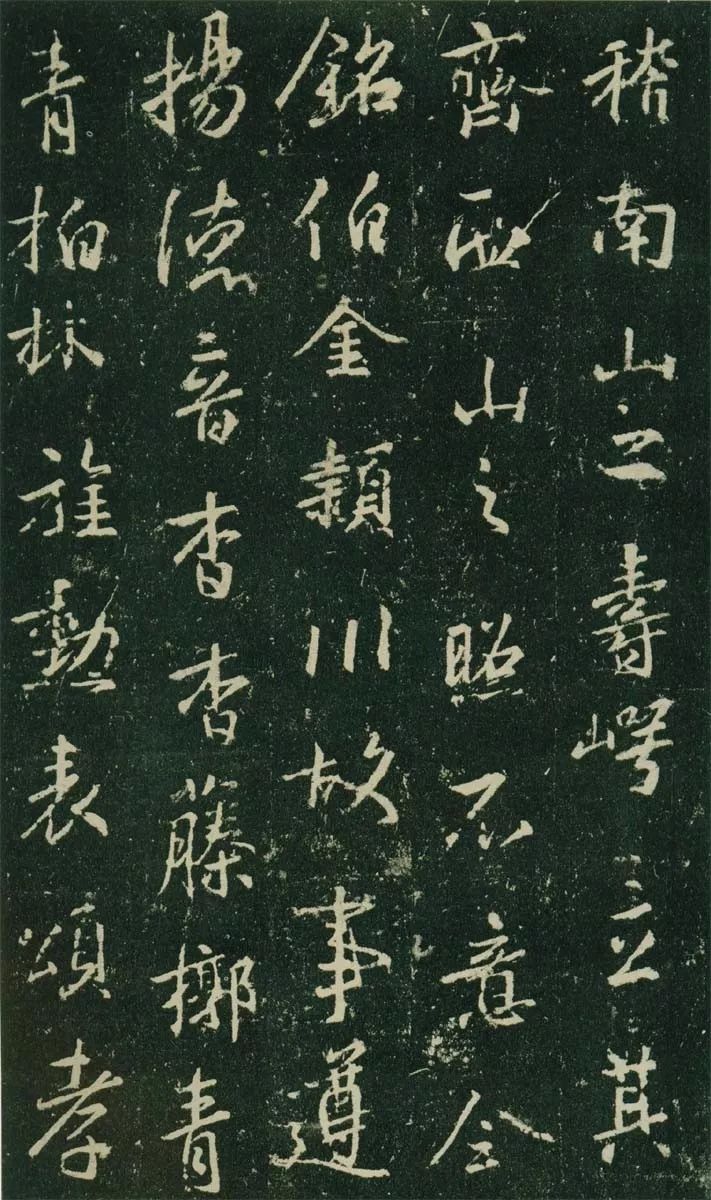 稽南山之壽崿立其
齊丘山之照不意今
銘伯金穎川故事遵
揚德音杳杳藤槨青
青柏林旌勳表頌孝